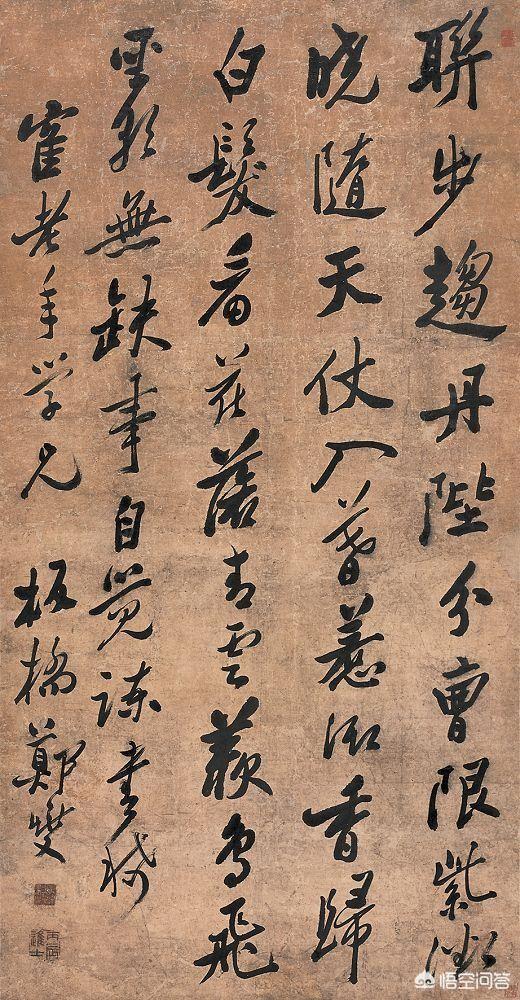 聯步趨丹陛分曹限紫微
曉隨天仗入暮惹御香歸
白髮看花落青雲羨鳥飛
聖朝無缺事自覺諫書稀
寉老年學兄 板橋鄭燮
丙辰進士
悟空问答